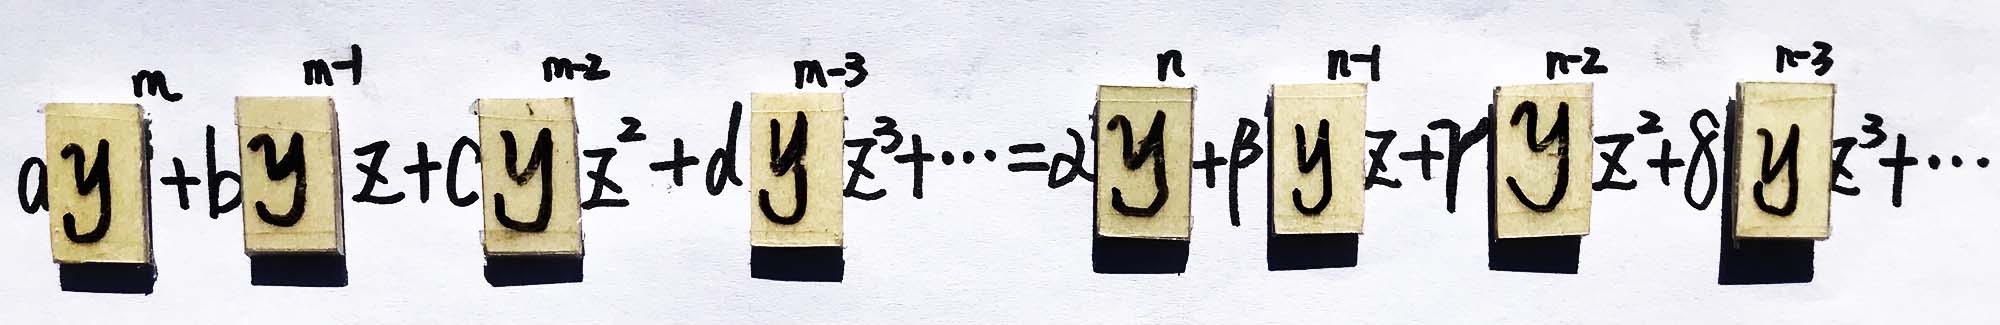 ay^m+by^{m-1}z+cy^{m-2}z^2+dy^{m-3}z^3+⋯=αy^n+βy^{n-1}z+γy^{n-2}z^2+δy^{n-3}z^3+⋯